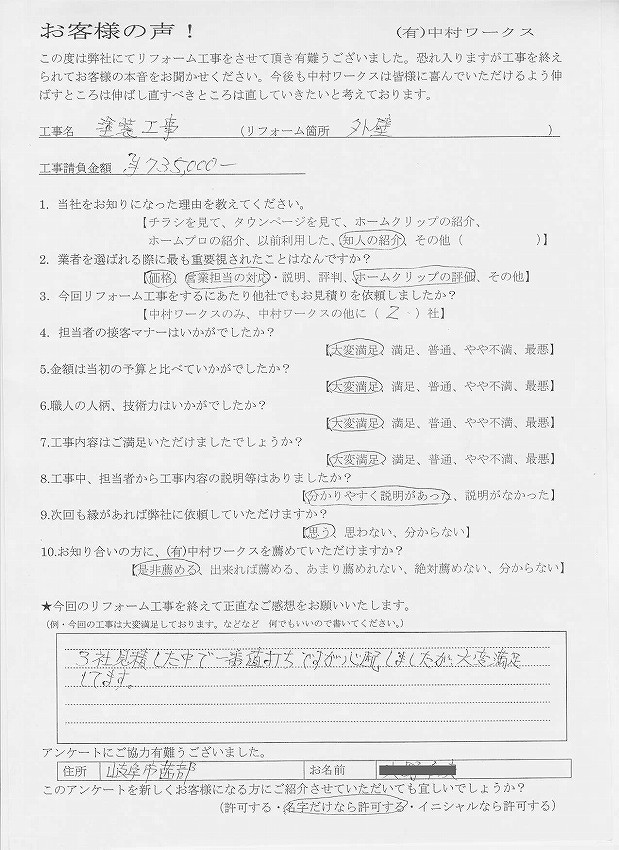 お客様の声！ (有)中村ワークス
この度は弊社にてリフォーム工事をさせて頂き有難うございました。恐れ入りますが工事を終え
られてお客様の本音をお聞かせください。今後も中村ワークスは皆様に喜んでいただけるよう伸
ばすところは伸ばし直すべきところは直していきたいと考えております。
工事名 塗装工事 (リフォーム箇所 外壁 )
工事請負金額 ¥735,000-
1. 当社をお知りになった理由を教えてください。
【チラシを見て、タウンページを見て、ホームクリップの紹介、
ホームプロの紹介、以前利用した、知人の紹介、その他 ( )】
2. 業者を選ばれる際に最も重要視されたことはなんですか？
【価格、営業担当の対応・説明、評判、ホームクリップの評価、その他】
3. 今回リフォーム工事をするにあたり他社でもお見積りを依頼しましたか？
【中村ワークスのみ、中村ワークスの他に ( 2 ) 社】
4. 担当者の接客マナーはいかがでしたか？
【大変満足、満足、普通、やや不満、最悪】
5.金額は当初の予算と比べていかがでしたか？
【大変満足、満足、普通、やや不満、最悪】
6.職人の人柄、技術力はいかがでしたか？
【大変満足、満足、普通、やや不満、最悪】
7.工事内容はご満足いただけましたでしょうか？
【大変満足、満足、普通、やや不満、最悪】
8.工事中、担当者から工事内容の説明等はありましたか？
【分かりやすく説明があった、説明がなかった】
9.次回も縁があれば弊社に依頼していただけますか？
【思う、思わない、分からない】
10.お知り合いの方に、(有)中村ワークスを薦めていただけますか？
【是非薦める、出来れば薦める、あまり薦めれない、絶対薦めない、分からない】
★今回のリフォーム工事を終えて正直なご感想をお願いいたします。
(例・今回の工事は大変満足しております。などなど 何でもいいので書いてください。)
3社見積した中で一番値打ちですが心配しましたが、大変満足
してます。
アンケートにご協力有難うございました。
住所 岐阜市茜部 お名前
このアンケートを新しくお客様になる方にご紹介させていただいても宜しいでしょうか？
(許可する・名字だけなら許可する・イニシャルなら許可する)